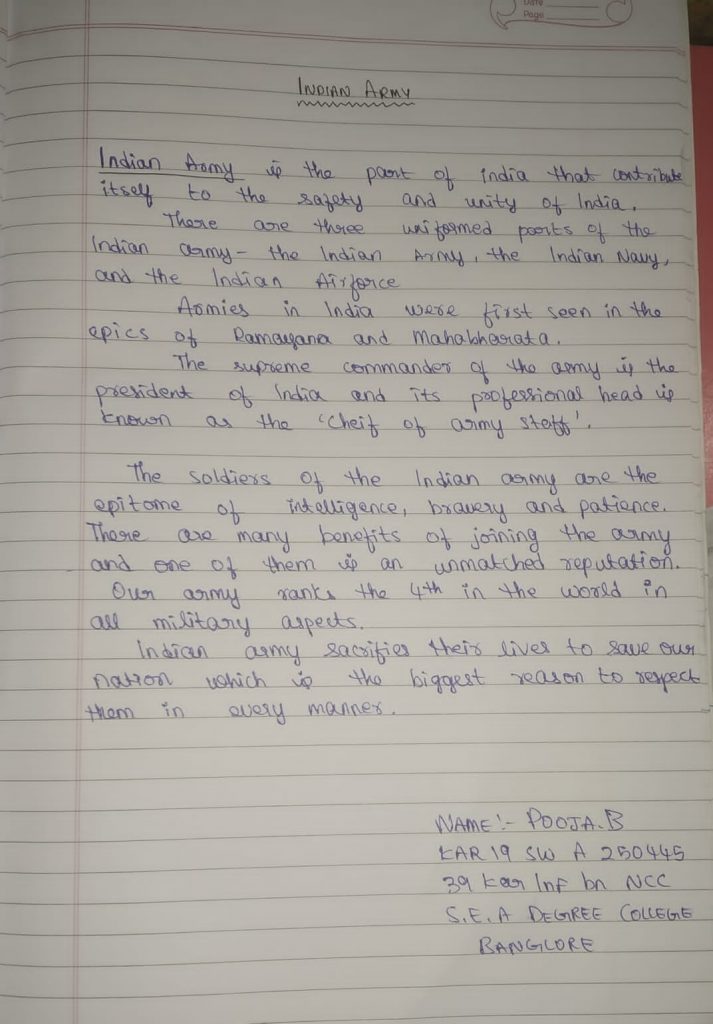 Date
Page
INDIAN ARMY
Indian Army is the part of india that contribute
itself to the safety and unity of India.
There are three uniformed parts of the
Indian army - the Indian Army, the Indian Navy,
and the Indian Airforce
Armies in India were first seen in the
epics of Ramayana and Mahabharata.
The supreme commander of the army is the
president of India and its professional head is
known as the 'Cheif of army staff'.
The soldiers of the Indian army are the
epitome of intelligence, bravery and patience.
There are many benefits of joining the army
and one of them is an unmatched reputation.
Our army ranks the 4th in the world in
all military aspects.
Indian army sacrifies their lives to save our
nation which is the biggest reason to respect
them in every manner.
NAME:- POOJA.B
KAR 19 SW A 250445
39 Kar Inf bn NCC
S.E.A DEGREE COLLEGE
BANGLORE